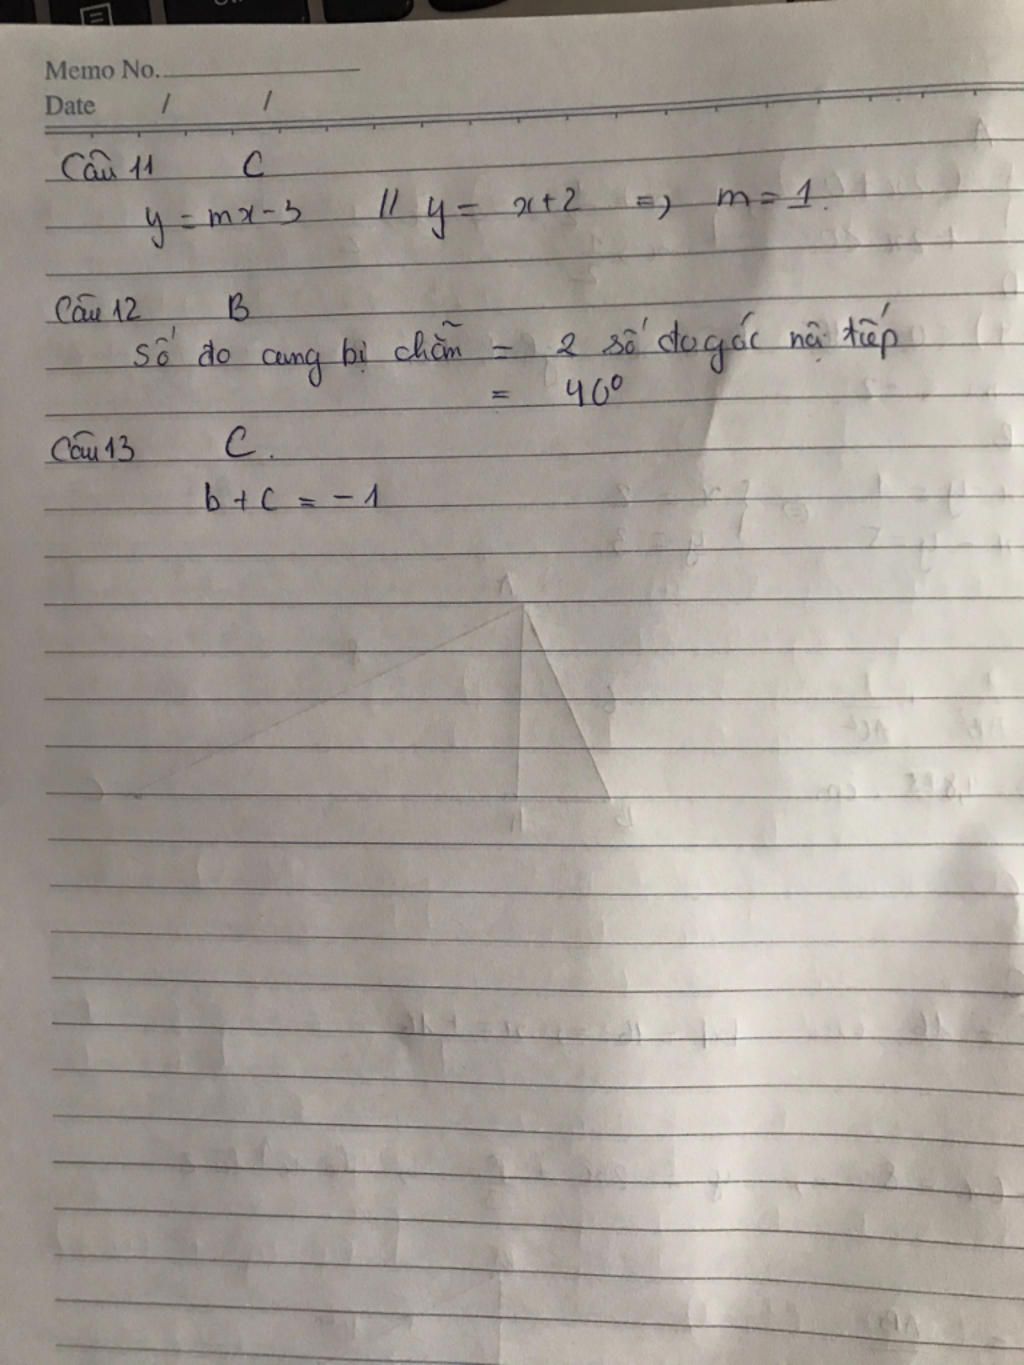 Memo No.
Date / /
Câu 11 C
y = mx - 3 // y = x + 2 => m = 1.
Câu 12 B
Số đo cung bị chắn = 2 số đo góc nội tiếp
= 40°
Câu 13 C.
b + c = - 1